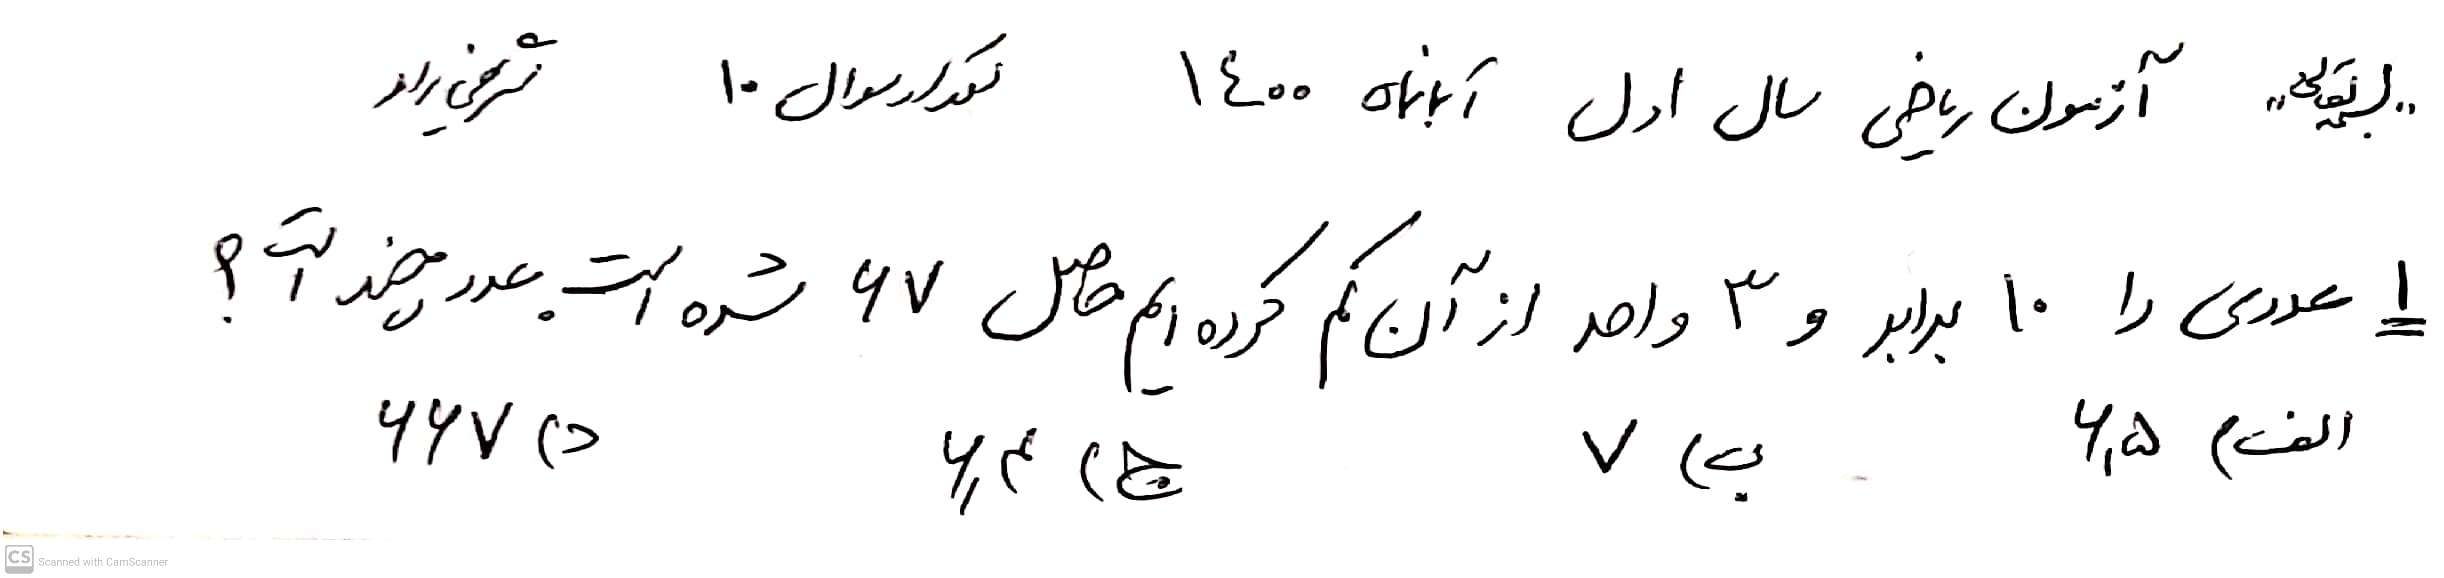 "بسمه تعالی" آزمون ریاضی سال اول آبانماه ۱۴۰۰ تعداد سوال ۱۰ شریفی راد
۱ عددی را ۱۰ برابر و ۳ واحد از آن کم کرده ایم حاصل ۶۷ شده است. عدد چند است؟
الف) ۶,۵ ب) ۷ ج) ۶,۴ د) ۶۶۷
CS Scanned with CamScanner